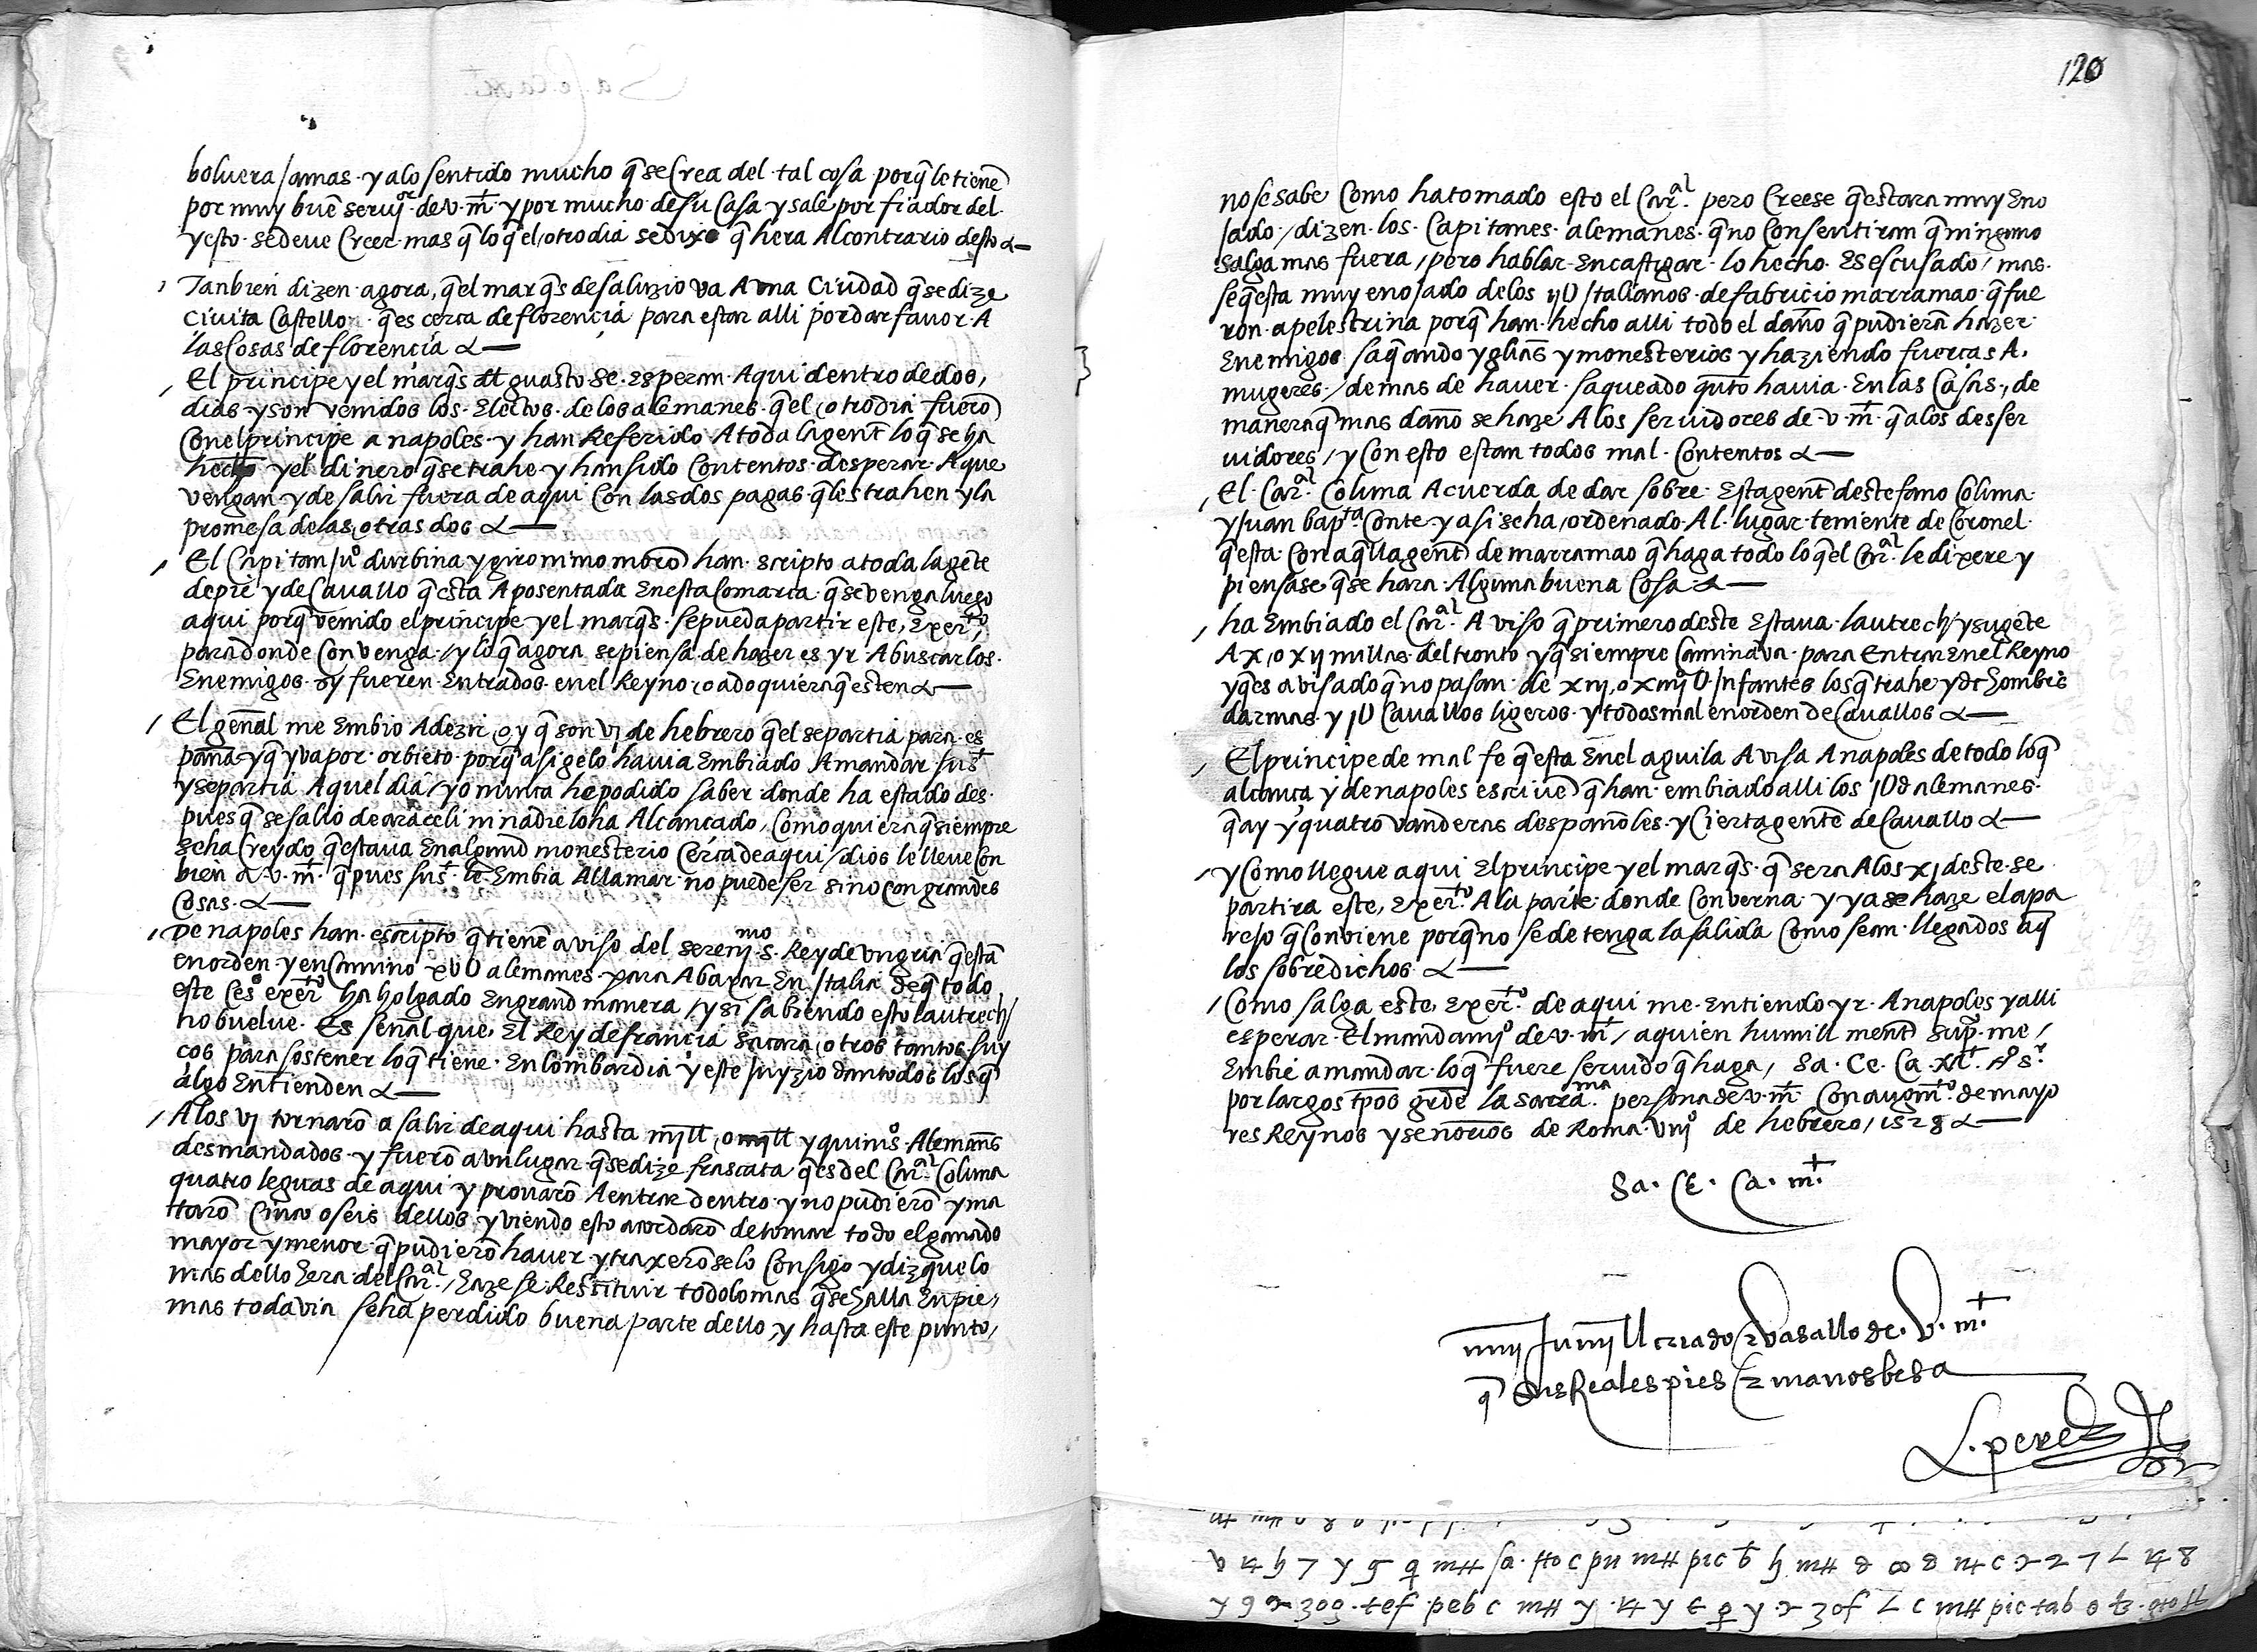 boluera jamas · y alo sentido mucho q̃ se Crea del · tal cosa porq̃ le tienē
por muy buē seruor · de v · mt · y por mucho de su Casa y sale por fiador del ·
y esto · se deue Creer mas q̃ lo q̃ el otro dia se dixo q̃ hera Al contrario desto
/ Tanbien dizen agora, q̃el marq̃s de saluzio va A vna Ciudad q̃ se dize
Ciuita Castello · q̃es cerca de florencia para estar alli por dar fauor · A
las Cosas de florencia
/ El principe y el marq̃s del guasto se · esperan · Aqui dentro de dos
dias · y son venidos los · Electos · de los alemanes · q̃ el otro dia fuerō
Con el principe a napoles · y han Referido A toda la gent̃ lo q̃ se ha
hecho y el dinero q̃ se trahe y han sido Contentos · desperar · A que
vengan · y de salir fuera de aqui Con las dos pagas · q̃ les trahen y la
promesa de las otras dos
/ El Capitan Juº durbina y gironimo morō han · scripto a toda la gẽte
de pie y de Cauallo q̃ esta Aposentada En esta Comarca · q̃ se venga luego
aqui porq̃ venido el principe y el marq̃s · se pueda partir este, Exerto,
para donde Convenga · / y lo q̃ agora se piensa · de hazer es yr A buscar los ·
Enemigos · sy fueren Entrados · en el Reyno · o adoquiera q̃ esten
/ El gen̄al me Embio A dezir oy q̃ son vj de hebrero q̃ el se partia para es
pan̄a · y q̃ yva por · orbieto · porq̃ asi gelo hauia Embiado A mandar · su st
y se partia Aquel dia / yo nunca he podido saber · donde ha estado des ·
pues q̃ se salio de araceli ni nadie lo ha Alcancado, Como quiera q̃ siempre
se ha Creydo q̃ estaua En algund monesterio Cerca de aqui / dios le lleue Con
bien a · v · mt · q̃ pues su st · le Embia A llamar · no puede ser sino Con grandes
Cosas ·
/ De napoles han · escripto q̃ tienē aviso del serenjmo · s · Rey de vngria q̃ estā
en orden · y en Camino xv U alemanes · para A baxar En Italia de q̃ todo
este Ces º exerto ha holgado En grand manera / y si sabiendo esto lautrech /
no buelue · Es sen̄al que, El Rey de francia sacara otros tantos suy
cos para sostener lo q̃ tiene · En lombardia y este juyzio dan todos los q̃
algo Entienden
/ A los vj tornarō a salir de aqui hasta mjll, o mjll y quinios · Alemanes
desmandados · y fuerō a vn lugar · q̃ se dize frascata q̃es del Caral · Coluna
quatro leguas de aqui y prouarō A entrar dentro · y no pudierō y ma
tarō Cinco o seis dellos · y viendo esto acordarō de tomar todo el ganado
mayor y menor · q̃ pudierō hauer · y traxerōselo Consigo y diz que lo
mas dello hera · del Caral · / haze se Restituir todo lo mas q̃ se halla En pie,
mas todavia se ha perdido buena parte dello, y hasta este punto /
120
no se sabe Como ha tomado esto el Caral · pero Creese q̃ estara muy Eno
jado · / dizen · los · Capitanes · alemanes · q̃ no Consentiran q̃ ninguno
salga mas fuera, pero hablar · En castigar · lo hecho · Es escusado / mas ·
se q̃ esta muy enojado de los ij U Italianos · de fabricio marramao · q̃ fue
ron · a pelestrina porq̃ han · hecho alli todo el dan̄o q̃ pudierā hazer ·
Enemigos · saq̃ando yglias̃ y monesterios y haziendo fuercas A ·
mugeres · / demas de hauer · saqueado qnto hauia · En las Casas ·, de
manera q̃ mas dan̄o se haze A los seruidores de · v · mt · q̃ a los desser
uidores / y Con esto estan todos mal · Contentos
/ El · Caral · Coluna Acuerda de dar sobre · Esta gent̃ destefano Coluna ·
y Juan bapta Conte · y asi se ha ordenado · Al · lugar · teniente de Coronel ·
q̃ esta · Con aq̃lla gent̃ de marramao q̃ haga todo lo q̃ el Caral · le dixere y
piensase q̃ se hara · Alguna buena Cosa
/ ha Embiado el Caral · A viso q̃ primero deste Estaua · lautrech / y su gẽte
A x, o xij millas · del tronto y q̃ siempre Caminava · para Entrar En el Reyno
y q̃ es avisado q̃ no pasan · de xiij, o xiiijº U Infantes los q̃ trahe y dc hombres
darmas · y j U Cauallos ligeros · y todos mal en orden de Cauallos
/ El principe de malfe q̃ esta En el aguila A visa A napoles de todo lo q̃
alcanca y de napoles escriuē q̃ han · embiado alli los j U d alemanes ·
q̃ ay y quatro vanderas despan̄oles · y Cierta gente de Cauallo
/ y Como llegue aqui El principe y el marq̃s · q̃ sera A los xj deste · se
partira este, exerto · A la parte · donde Converna · y ya se haze el apa
rejo q̃ Conviene porq̃ no se detenga la salida Como sean · llegados aq̃
los sobredichos
/ Como salga este, Exerto · de aqui me · Entiendo yr · A napoles y alli
esperar · El mandamjº de v · mt / a quien humill mente supco · me /
Embie a mandar · lo q̃ fuere seruido q̃ haga, Sa · Ce · Ca · Mt · nro sr
por largos tpos grde la sacrama · persona de v · mt · Con augmto · de mayo
res Reynos y sen̄orios de Roma · viijº de hebrero / 1528
Sa · Ce · Ca · mt ·
muy humjll criado e Vasallo de · V · mt ·
q̃ sus Reales pies e manos besa
L. perez